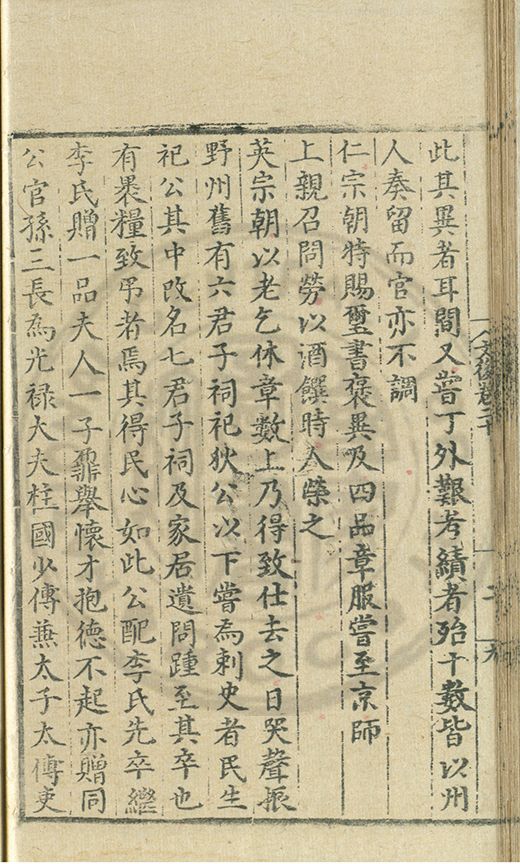 此其異者耳間又嘗丁外艱考績者殆十數皆以州
人奏留而官亦不調
仁宗朝特賜璽書褒異及四品章服嘗至京師
上親召問勞以酒饌時人榮之
英宗朝以老乞休章數上乃得致仕去之日哭聲振
野州舊有六君子祠祀狄公以下嘗為刺史者民生
祀公其中改名七君子祠及家居遺問踵至其卒也
有裹糧致弔者焉其得民心如此公配李氏先卒繼
李氏贈一品夫人一子鼐舉懷才抱德不起亦贈同
公官孫三長為光祿大夫柱國少傅兼太子太傅吏